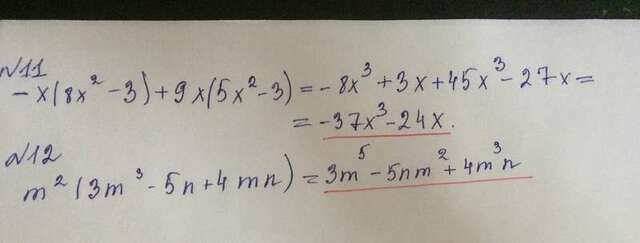 №11
-x(8x²-3)+9x(5x²-3)=-8x³+3x+45x³-27x=
=-37x³-24x.
№12
m²(3m³-5n+4mn)=3m⁵-5nm²+4m³n